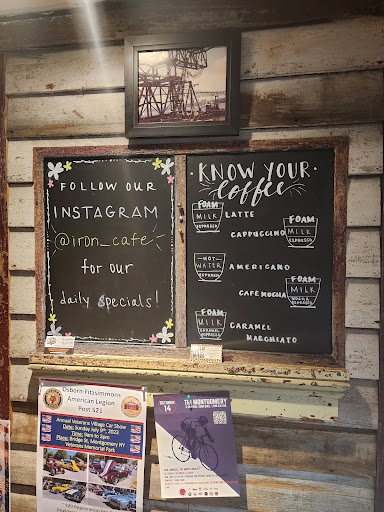 FOLLOW OUR
INSTAGRAM
@iron_cafe
for our
daily specials!
KNOW YOUR
coffee
FOAM
MILK
ESPRESSO
LATTE
CAPPUCCINO
FOAM
MILK
ESPRESSO
HOT
WATER
ESPRESSO
AMERICANO
CAFE MOCHA
FOAM
MILK
MOCHA
ESPRESSO
FOAM
MILK
CARAMEL
ESPRESSO
CARAMEL
MACCHIATO
Osborn-Fitzsimmons
American Legion
Post 521
Annual Veterans Village Car Show
Date: Sunday July 9th, 2023
Time: 9am to 3pm
Place: Bridge St, Montgomery NY
Veterans Memorial Park
OCTOBER
14
TM MONTGOMERY